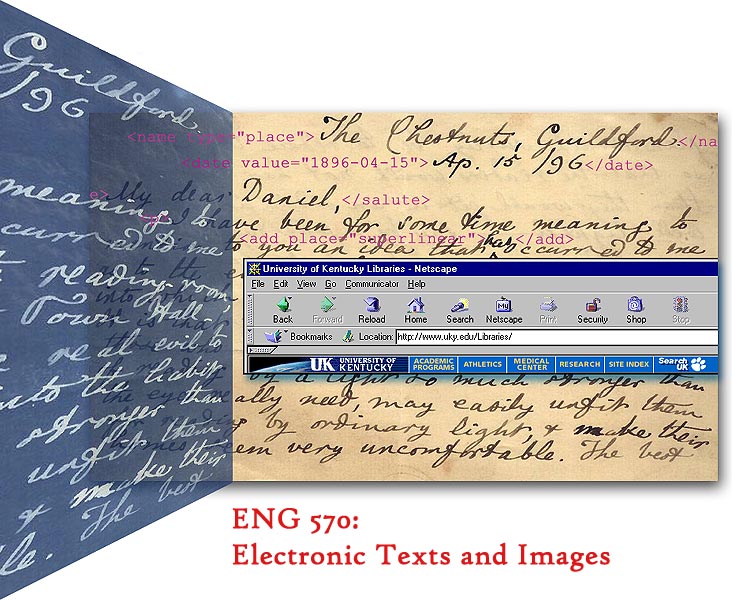 Guildford
/96
meaning
curred to me
reading-room
Town Hall
real evil to
into the habit
stronger than
unfit them
& make their
The best
<name type="place"> The Chestnuts, Guildford </na
<date value="1896-04-15"> Ap. 15 /96 </date>
e> My dear Daniel, </salute>
I have been for some time meaning to
<add place="superlinear"> has </add>
to you an idea that occurred to me
University of Kentucky Libraries - Netscape
File Edit View Go Communicator Help
Back Forward Reload Home Search Netscape Print Security Shop Stop
Bookmarks Location: http://www.uky.edu/Libraries/
UK UNIVERSITY OF KENTUCKY ACADEMIC PROGRAMS ATHLETICS MEDICAL CENTER RESEARCH SITE INDEX Search UK
by a light so much stronger than
the eyes really need, may easily unfit them
for reading by ordinary light, & make their
seem very uncomfortable. The best
ENG 570:
Electronic Texts and Images